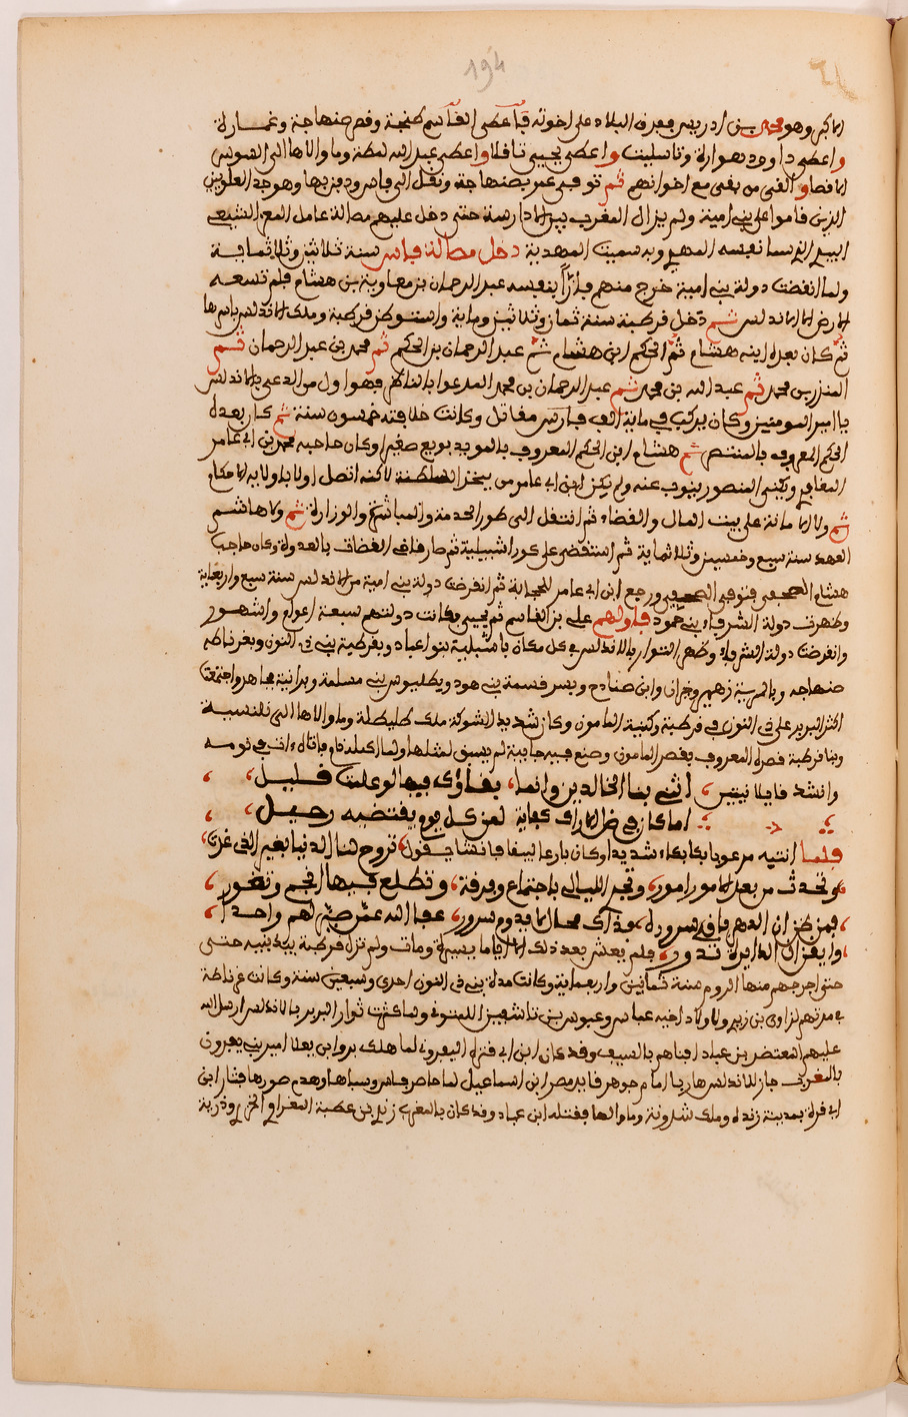 194
الاكبر وهو محمد بن ادريس ففرق البلاد على اخوته فاعطى القاسم طنجة وقصر صنهاجة وغمارة
واعطى داوود هوارة وتاسليت واعطى يحيى تافلا واعطى عبد الله لمطة وما والاها الى السوس
الاقصا والقى من بقى مع اخوانهم ثم توفى عمر بصنهاجة ونقل الى فاس ودفن بها وهو جد العلويين
الذين قاموا على بني امية ولم يزال المغرب بين الادارسة حتى دخل عليهم مصالة عامل المعز الشيعي
الذي سما نفسه المهدي وبه سميت المهدية دخل مصالة فاس سنة ثلاثين وثلاثماية
ولما انقضت دولة بني امية خرج منهم فارّاً بنفسه عبد الرحمان بن معاوية بن هشام فلم تسعه
الارض الا الاندلس ثم دخل قرطبة سنة ثمان وثلاثين وماية واستوطن قرطبة وملك الاندلس باسرها
ثم كان بعده ابنه هشام ثم الحكم ابن هشام ثم عبد الرحمان بن الحكم ثم محمد بن عبد الرحمان ثم
المنذر بن محمد ثم عبد الله بن محمد ثم عبد الرحمان بن محمد المدعوا بالناصر فهوا ول من ادعى بالاندلس
يا امير المومنين وكان يركب في ماية الف فارس مقاتل وكانت خلافته خمسون سنة ثم كان بعده
الحكم المعروف بالمنتصر ثم هشام ابن الحكم المعروف بالمويد بويع صغيرا وكان حاجبه محمد بن ابي عامر
المعافري ويكنى المنصور ينوب عنه ولم يكن ابن ابي عامر من بيت السلطنة لاكنه اتصل اولا بولاية الاحكام
ثم ولا الامانة على بيت المال والقضاء ثم انتقل الى طور الخدمة والمباشرة والوزارة ثم ولا هاشم
العهد سنة سبع وخمسين وثلاثماية ثم استقضى على كورا شبيلية ثم صار قاضى القضاة بالعدوة وكان حاجب
هشام المصحفي فتوفى المصحفي ورجع ابن ابي عامر للحجابة ثم انقرضت دولة بني امية من الاندلس سنة سبع واربعماية
وظهرت دولة الشرفاء بني حمود فاولهم علي بن القاسم ثم يحيى وكانت دولتهم سبعة اعوام واشهور
وانقرضت دولة الشرفاء وظهر الثوار بالاندلس في كل مكان باشبيلية بنوا عباد وبقرطبة بني ذي النون وبغرناطة
صنهاجه وبالمرية زهير وخيران وابن صمادح وبسرقسطة بني هود وبطليوس بني مسلمة وبدانية مجاهد واجتمعت
اكثر البربر على ذي النون في قرطبة وكنيته المامون وكان شديد الشوكة ملك طليطلة وما والاها الى بلنسية
وبنا قرطبة قصره المعروف بقصر المامون وصنع فيه جابية لم يسبق لمثلها ولما اكمله نام فاتاه ءات في نومه
وانشد قايلا بيتين ، اتبني بنا الخالدين وانما ، بقاؤك فيها لو علمت قليل
اما كان في ظل الاراك كفاية لمن كل يوم يقتضيه رحيل
فلما انتبه مرعوبا بكا بكاء شديدا وكان بارعا لبيقا فانشا يقول تروح لنا الدنيا بغير الذي غدت
وتحدث من بعد الامور امور، وتجر الليالي باجتماع وفرقة، وتطلع فيها انجم وتغور
فمن ظن ان الدهر باق سروره، فذاك محال لا يدوم سرور، عفا الله عمن صير لهم واحدا
وايقن ان الدايرات تدور، فلم يعش بعد ذلك الا اياما يسيرة ومات ولم تزل قرطبة بيد بنيه حتى
حتى اخرجهم منها الروم سنة ثمانين واربعماية وكانت مدة بني ذي النون احدى وسبعين سنة وكانت غرناطة
في مدتهم لزاوي بن زيري ولاولاد اخيه عباس وعبوس بن تاشفين اللمتوني ولما كثرت ثوار البربر بالاندلس ارسل الله
عليهم المعتضر بن عباد افناهم بالسيف وقد كان ابن ابي قرة اليفروني لما هلك بروا بن يعلا امير بني يفرون
بالمغرب جاز للاندلس هاربا امام جوهر قايد مصر ابن اسماعيل لما حاصر فاس وسباها وهدم صورها فثار ابن
ابي قرة بمدينة رندة وملك شدونة وما والاها فقتله ابن عباد وقد كان بالمغرب زيري بن عطية المغراوي الخزري وذرية